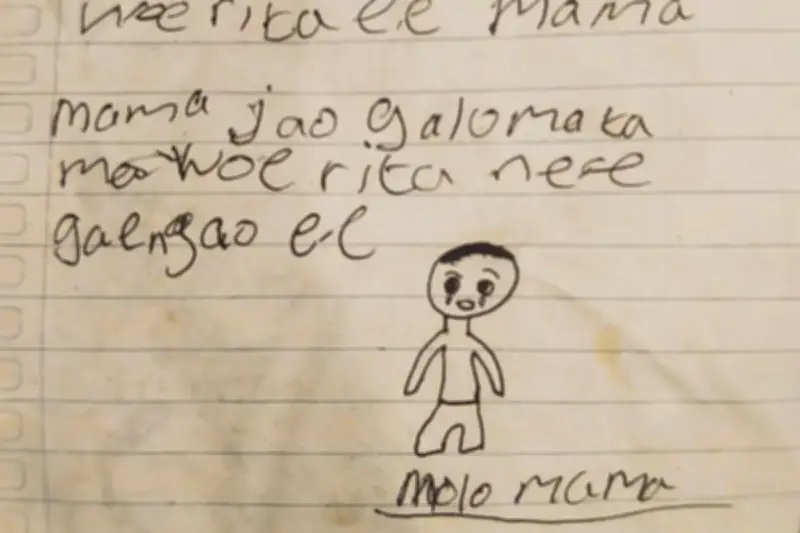 woe rita ee mama
mama jao galomata
ma woe rita nee
gaengao ee
molo mama